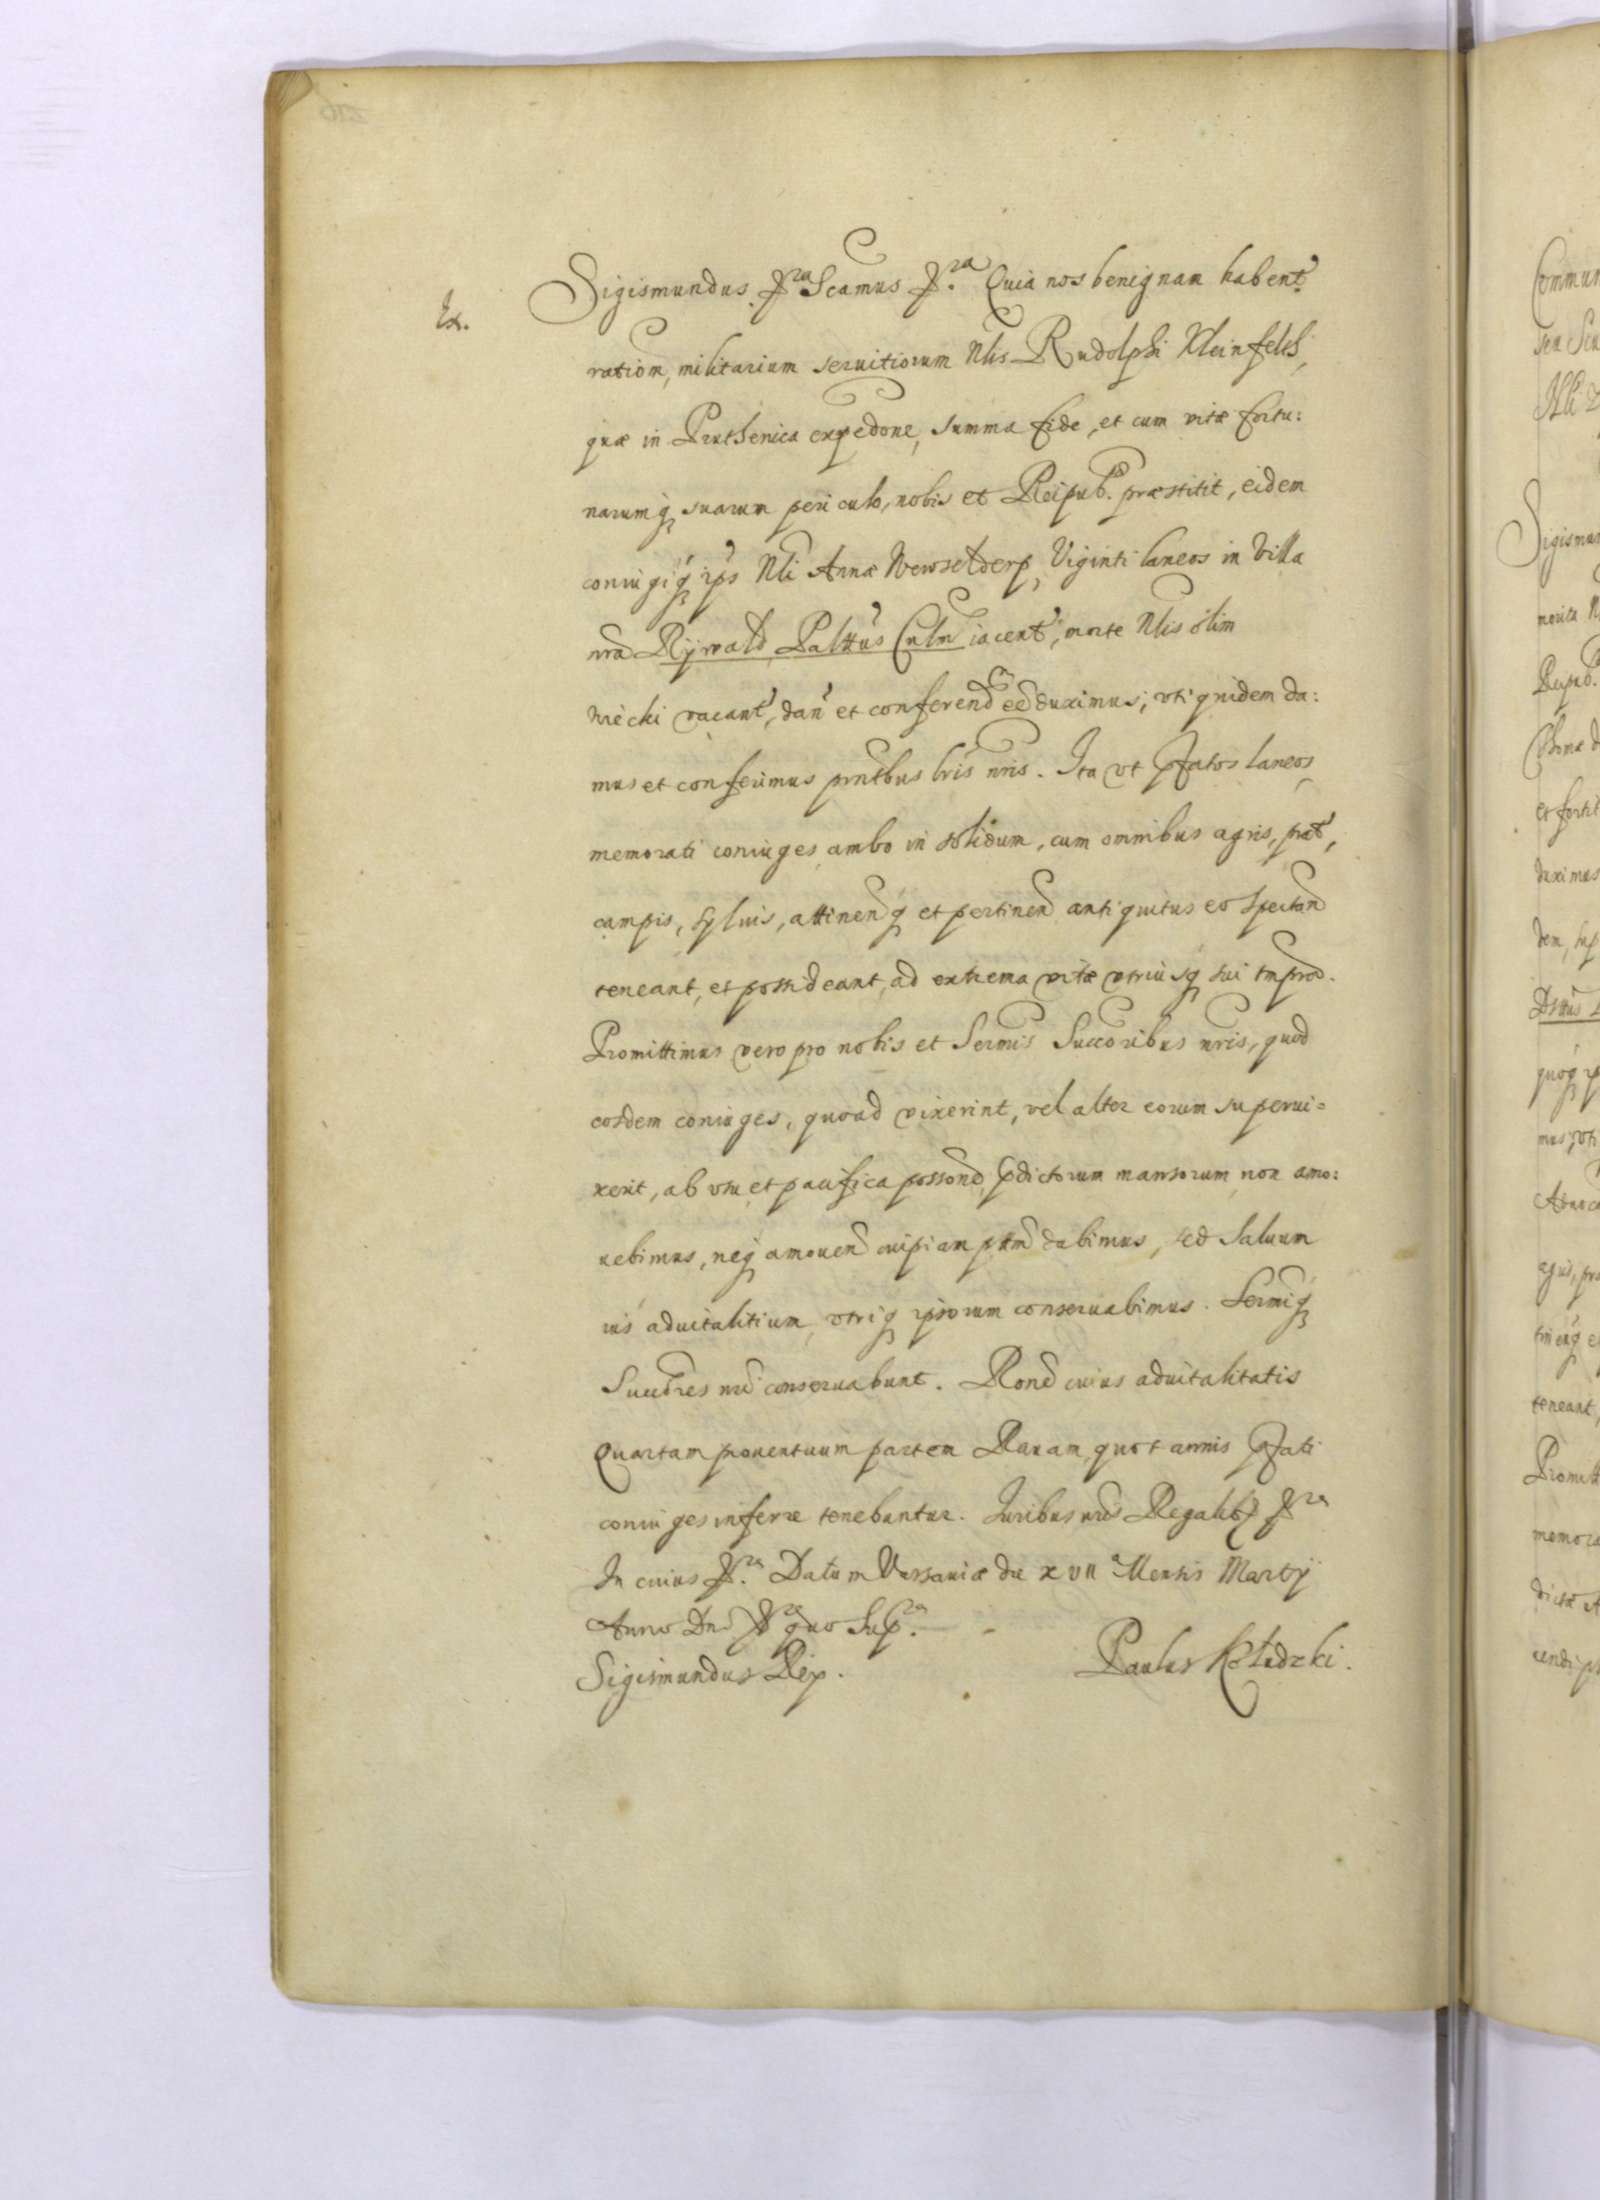 Sigismundus &ra Scamus &ra. Quia nos benignam habent
Ex.
ration, militarium seruitiorum Nlis Rudolphi Kleinfeldt,
quæ in Pruthenica expedone, summa fide, et cum vitæ fortu:
narumq suarum periculo, nobis et Reipub. præstitit, eidem
coniugiq ips Nli Annæ Viginti laneos in Villa
nra Rÿwald Palttus Culm iacent, morte Nlis olim
vacant, dan et conferend ee duximus, vti quidem da:
mus et conferimus prntbus lris nris. Ita vt pfatos laneos
memorati coniuges ambo in solidum, cum omnibus agris, prat,
campis, syluis, attinenq et pertinen antiquitus eo spectan
teneant, et possideant, ad extrema vitæ vtriusq sui
Promittimus vero pro nobis et Sermis Succoribus nris, quod
eosdem coniuges, quoad vixerint, vel alter eorum superui=
xerit, ab vsu et pacifica possone pdictorum mansorum non amo:
uebimus, neq amouen cuipiam pttm dabimus, sed saluum
ius aduitalitium, vtriq ipsorum conseruabimus. Sermiq
Succores nri conseruabunt. Rone cuius aduitalitatis
Quartam prouentuum partem Rauam, quot annis pfati
coniuges inferre tenebuntur. Iuribus nris Regalibq &ra
In cuius &ra. Datum Varsauiæ die XVII Mensis Martij
Anno Dni &ra quo supra.
Sigismundus Rex. Paulus Kołudzki.
Commun
seu
Nli
Sigismun
merita N
Reipub.
et fortit
duximus
dem, sup
quoq ip
mus, vti
teneant,
Promitt
memora
dictæ A